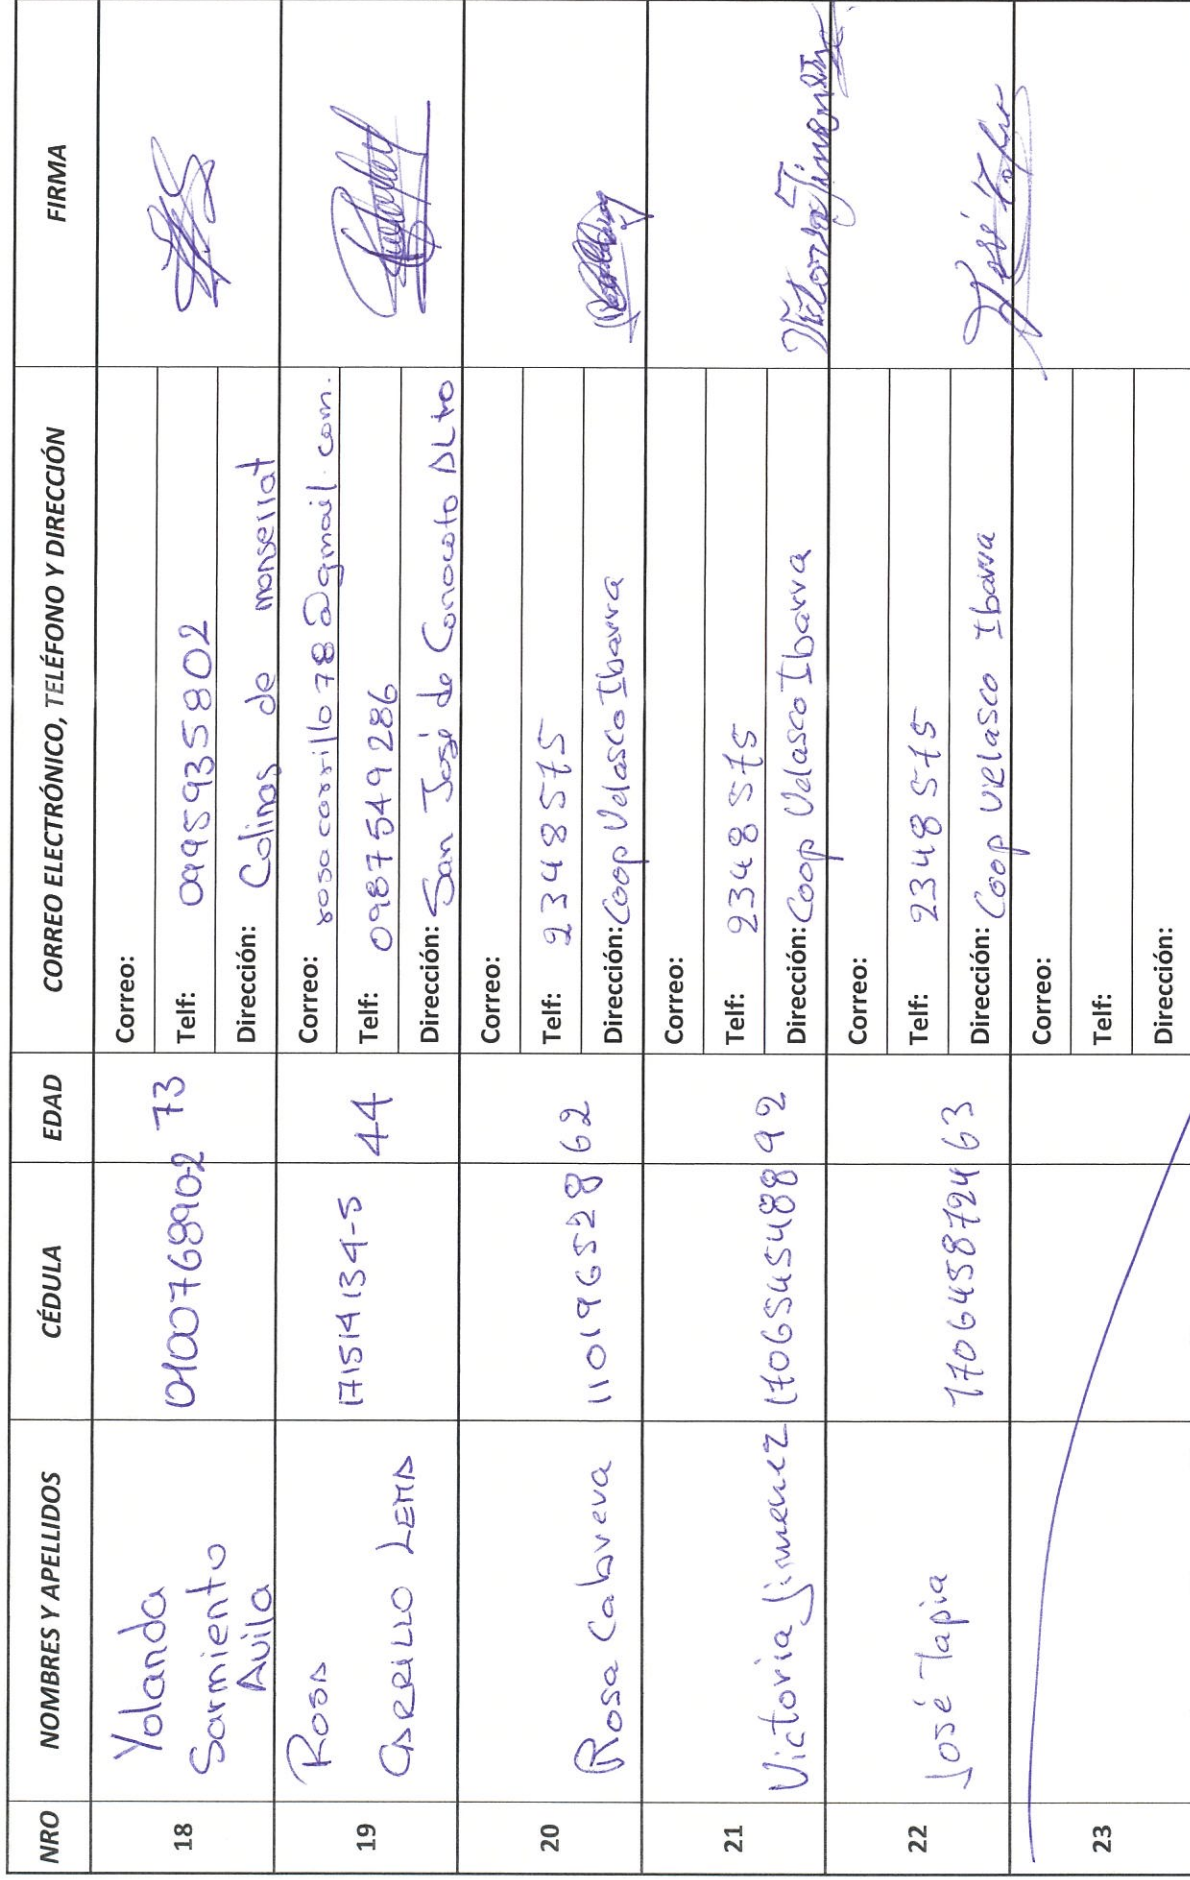 NRO NOMBRES Y APELLIDOS CÉDULA EDAD CORREO ELECTRÓNICO, TELÉFONO Y DIRECCIÓN FIRMA
18 Yolanda Sarmiento Avila 0100768902 73
Correo:
Telf: 0995935802
Dirección: Colinas de monserrat
19 Rosa CARRILLO LEMA 171514134-5 44
Correo: rosacarrillo78@gmail.com.
Telf: 0987549286
Dirección: San José de Conocoto ALto
20 Rosa Cabrera 110196528 62
Correo:
Telf: 2348575
Dirección: Coop Velasco Ibarra
21 Victoria Jimenez 1706545488 92
Correo:
Telf: 2348575
Dirección: Coop Velasco Ibarra
Victoria Jimenez
22 José Tapia 1706458724 63
Correo:
Telf: 2348575
Dirección: Coop Velasco Ibarra
José Tapia
23
Correo:
Telf:
Dirección: